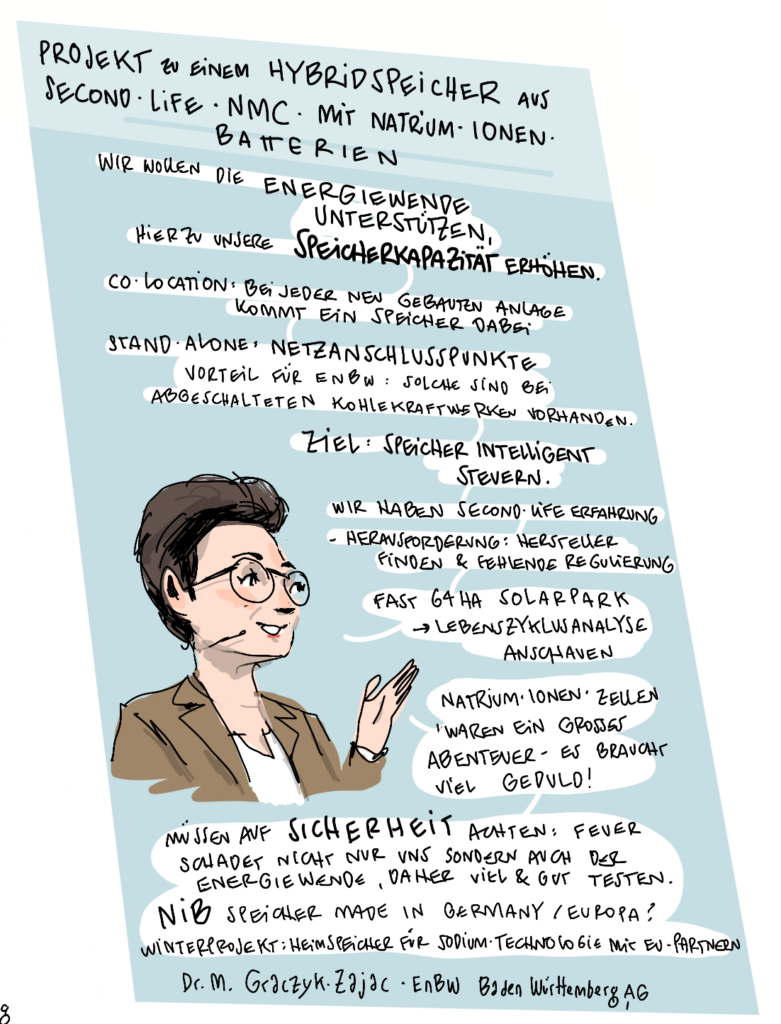 PROJEKT ZU EINEM HYBRIDSPEICHER AUS
SECOND·LIFE·NMC·MIT NATRIUM·IONEN·
BATTERIEN
WIR WOLLEN DIE ENERGIEWENDE
UNTERSTÜTZEN,
HIERZU UNSERE SPEICHERKAPAZITÄT ERHÖHEN.
CO·LOCATION: BEI JEDER NEU GEBAUTEN ANLAGE
KOMMT EIN SPEICHER DABEI
STAND·ALONE: NETZANSCHLUSSPUNKTE
VORTEIL FÜR ENBW: SOLCHE SIND BEI
ABGESCHALTETEN KOHLEKRAFTWERKEN VORHANDEN.
ZIEL: SPEICHER INTELLIGENT
STEUERN.
WIR HABEN SECOND·LIFE ERFAHRUNG
- HERAUSFORDERUNG: HERSTELLER
FINDEN & FEHLENDE REGULIERUNG
FAST 64HA SOLARPARK
→ LEBENSZYKLUSANALYSE
ANSCHAUEN
NATRIUM·IONEN·ZELLEN
'WAREN EIN GROSSES
ABENTEUER - ES BRAUCHT
VIEL GEDULD!
MÜSSEN AUF SICHERHEIT ACHTEN: FEUER
SCHADET NICHT NUR UNS SONDERN AUCH DER
ENERGIEWENDE, DAHER VIEL & GUT TESTEN.
NiB SPEICHER MADE IN GERMANY/EUROPA?
WINTERPROJEKT: HEIMSPEICHER FÜR SODIUM·TECHNOLOGIE MIT EU·PARTNERN
Dr. M. Graczyk·Zajac · EnBW Baden Württemberg AG
8